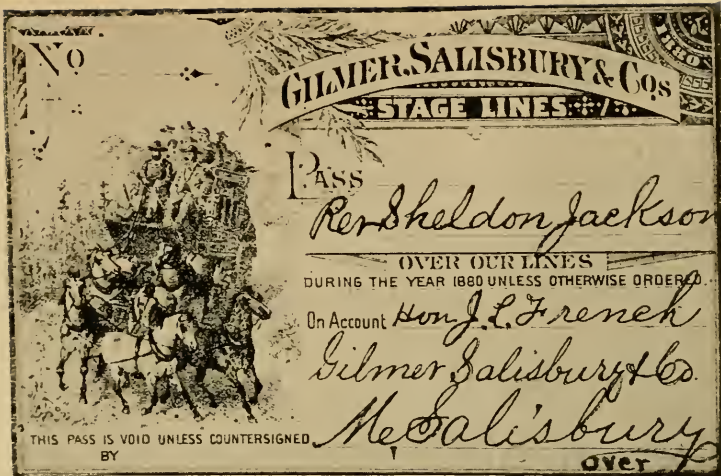 No
1880
GILMER, SALISBURY & Cos
STAGE LINES
PASS
Rev Sheldon Jackson
OVER OUR LINES
DURING THE YEAR 1880 UNLESS OTHERWISE ORDERED.
On Account Hon J. L. French
Gilmer Salisbury & Co.
THIS PASS IS VOID UNLESS COUNTERSIGNED
BY
Salisbury
over